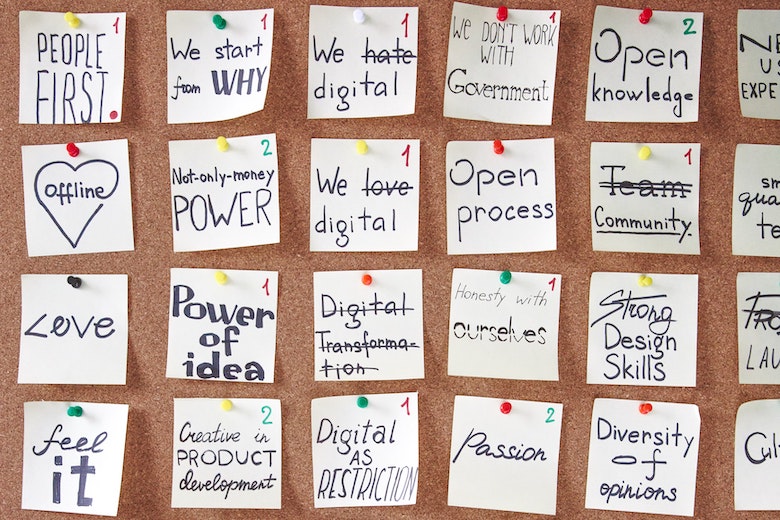 PEOPLE 1
FIRST
We start 1
from WHY
We hate 1
digital
We DON'T WORK 1
WITH
Government
Open 2
knowledge
NE
US
EXPE
offline
Not-only-money 2
POWER
We love 1
digital
Open
process
Team 1
Community.
sm
qua
te
Love
Power 1
of
idea
Digital
Transforma-
tion
Honesty with 1
ourselves
Strong
Design
Skills
LAU
feel
it
Creative in 2
PRODUCT
development
Digital 1
AS
RESTRICTION
Passion 2
Diversity
of
opinions
Cul